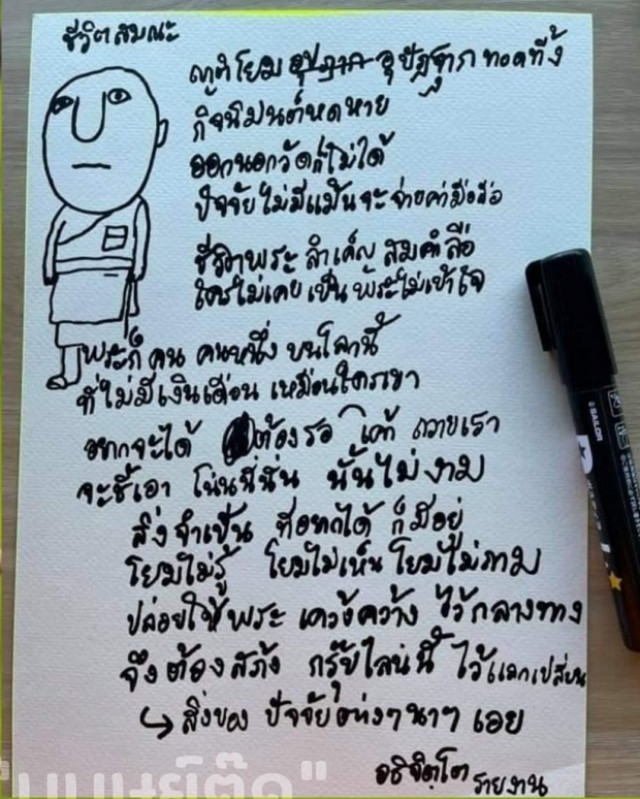 ชีวิตสมณะ
ญาติโยม อุปัฏฐาก ทอดทิ้ง
กิจนิมนต์หดหาย
ออกนอกวัดก็ไม่ได้
ปัจจัยไม่มีแม้นจะจ่ายค่ามือถือ
ชีวิตพระ ลำเค็ญ สมคำลือ
ใครไม่เคย เป็น พระไม่เข้าใจ
พระก็ คน คนหนึ่ง บนโลกนี้
ที่ไม่มีเงินเดือน เหมือนใครเขา
อยากจะได้ ต้องรอ เค้า ถวายเรา
จะชี้เอา โน่นนี่นั่น นั้นไม่งาม
สิ่งจำเป็น ที่อยากได้ ก็มีอยู่
โยมไม่รู้ โยมไม่เห็น โยมไม่ถาม
ปล่อยให้พระ เคว้งคว้าง ไว้กลางทาง
จึงต้องสร้าง กรุ๊ปไลน์นี้ ไว้แลกเปลี่ยน
สิ่งของ ปัจจัยต่างๆนาๆ เอย
อธิจิตฺโต
รายงาน
SAILOR
"มนุษย์ตุ๊ด"